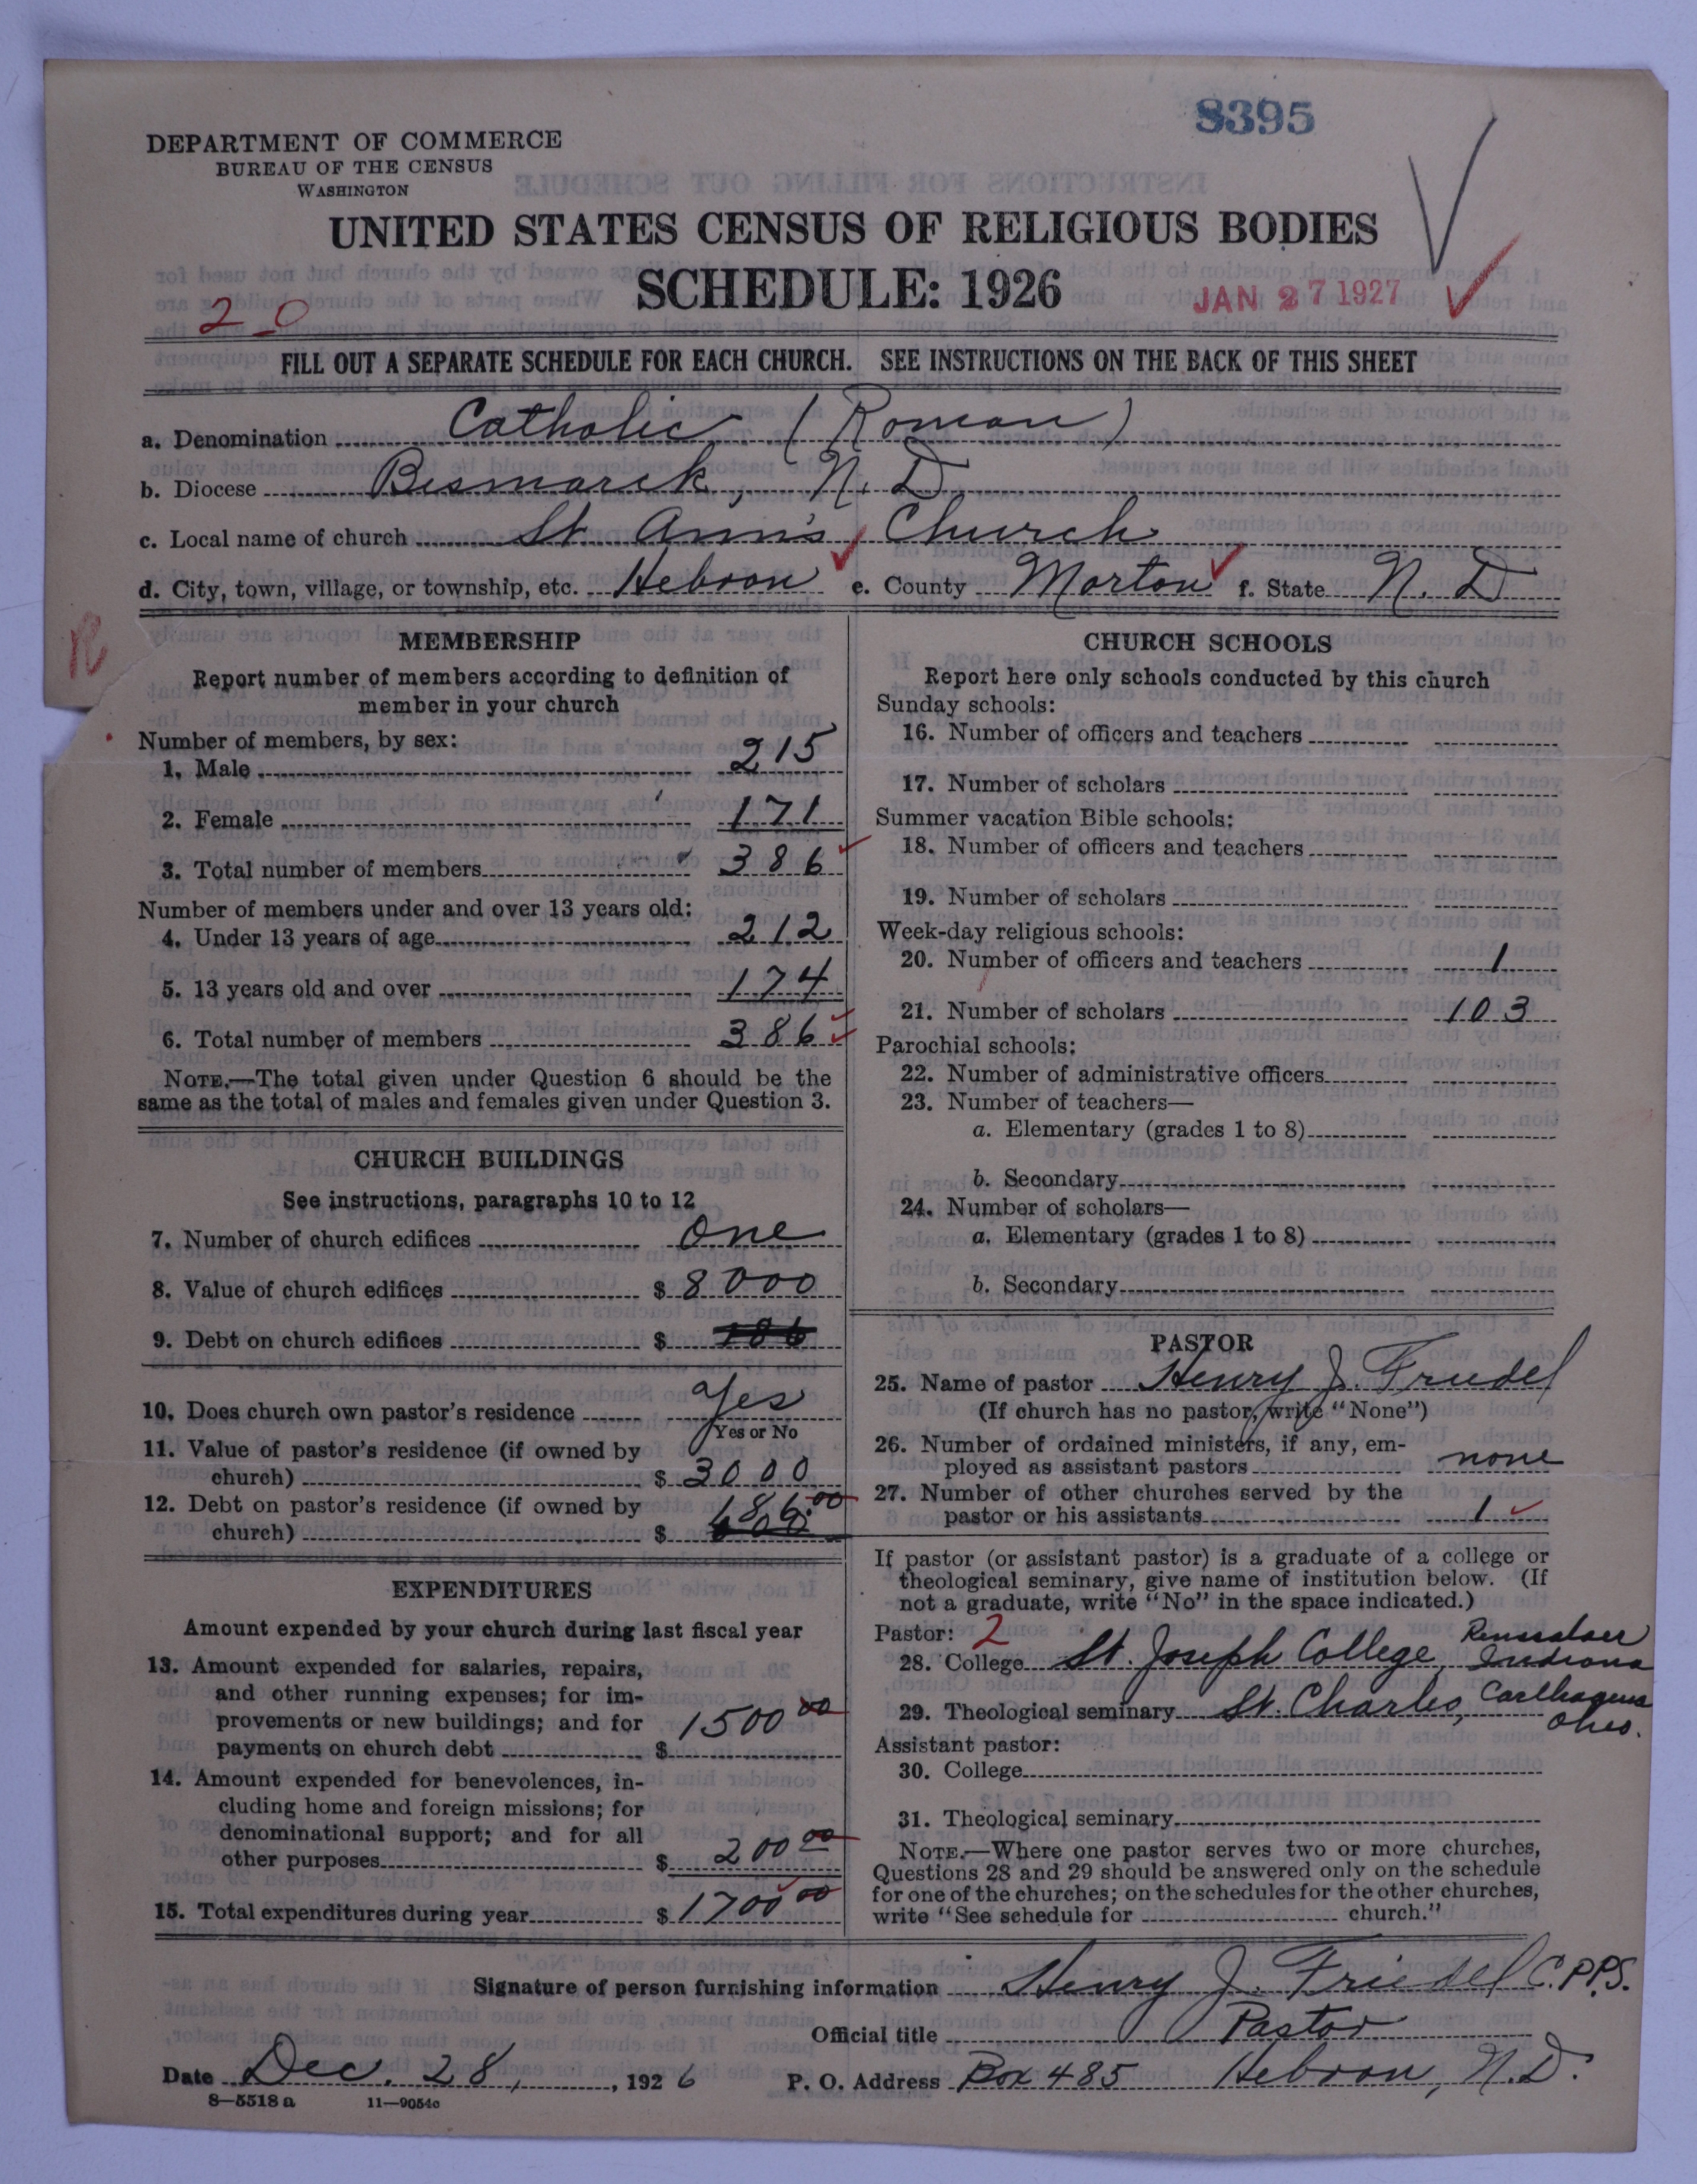 8395
DEPARTMENT OF COMMERCE
BUREAU OF THE CENSUS
WASHINGTON
UNITED STATES CENSUS OF RELIGIOUS BODIES
SCHEDULE: 1926
JAN 27 1927
2 0
FILL OUT A SEPARATE SCHEDULE FOR EACH CHURCH. SEE INSTRUCTIONS ON THE BACK OF THIS SHEET
a. Denomination Catholic (Roman)
b. Diocese Bismarck, N. D.
c. Local name of church St. Ann's Church
d. City, town, village, or township, etc. Hebron e. County Morton f. State N. D
R
MEMBERSHIP
Report number of members according to definition of
member in your church
Number of members, by sex:
1. Male 215
2. Female 171
3. Total number of members 386
Number of members under and over 13 years old:
4. Under 13 years of age 212
5. 13 years old and over 174
6. Total number of members 386
NOTE.—The total given under Question 6 should be the
same as the total of males and females given under Question 3.
CHURCH BUILDINGS
See instructions, paragraphs 10 to 12
7. Number of church edifices one
8. Value of church edifices $ 8000
9. Debt on church edifices $
10. Does church own pastor's residence Yes
Yes or No
11. Value of pastor's residence (if owned by
church) $ 3000
12. Debt on pastor's residence (if owned by
church) $ 186.00
EXPENDITURES
Amount expended by your church during last fiscal year
13. Amount expended for salaries, repairs,
and other running expenses; for im-
provements or new buildings; and for
payments on church debt $ 1500 00
14. Amount expended for benevolences, in-
cluding home and foreign missions; for
denominational support; and for all
other purposes $ 200 00
15. Total expenditures during year $ 1700 00
CHURCH SCHOOLS
Report here only schools conducted by this church
Sunday schools:
16. Number of officers and teachers
17. Number of scholars
Summer vacation Bible schools:
18. Number of officers and teachers
19. Number of scholars
Week-day religious schools:
20. Number of officers and teachers 1
21. Number of scholars 103
Parochial schools:
22. Number of administrative officers
23. Number of teachers—
a. Elementary (grades 1 to 8)
b. Secondary
24. Number of scholars—
a. Elementary (grades 1 to 8)
b. Secondary
PASTOR
25. Name of pastor Henry J. Friedel
(If church has no pastor, write "None")
26. Number of ordained ministers, if any, em-
ployed as assistant pastors none
27. Number of other churches served by the
pastor or his assistants 1
If pastor (or assistant pastor) is a graduate of a college or
theological seminary, give name of institution below. (If
not a graduate, write "No" in the space indicated.)
Pastor: 2
28. College St. Joseph College, Rensselaer Indiana
29. Theological seminary St. Charles, Carthagena Ohio.
Assistant pastor:
30. College
31. Theological seminary
NOTE.—Where one pastor serves two or more churches,
Questions 28 and 29 should be answered only on the schedule
for one of the churches; on the schedules for the other churches,
write "See schedule for church."
Signature of person furnishing information Henry J. Friedel C.PP.S.
Official title Pastor
Date Dec. 28, 1926 P. O. Address Box 485 Hebron, N.D.
8—5518 a 11—9054c